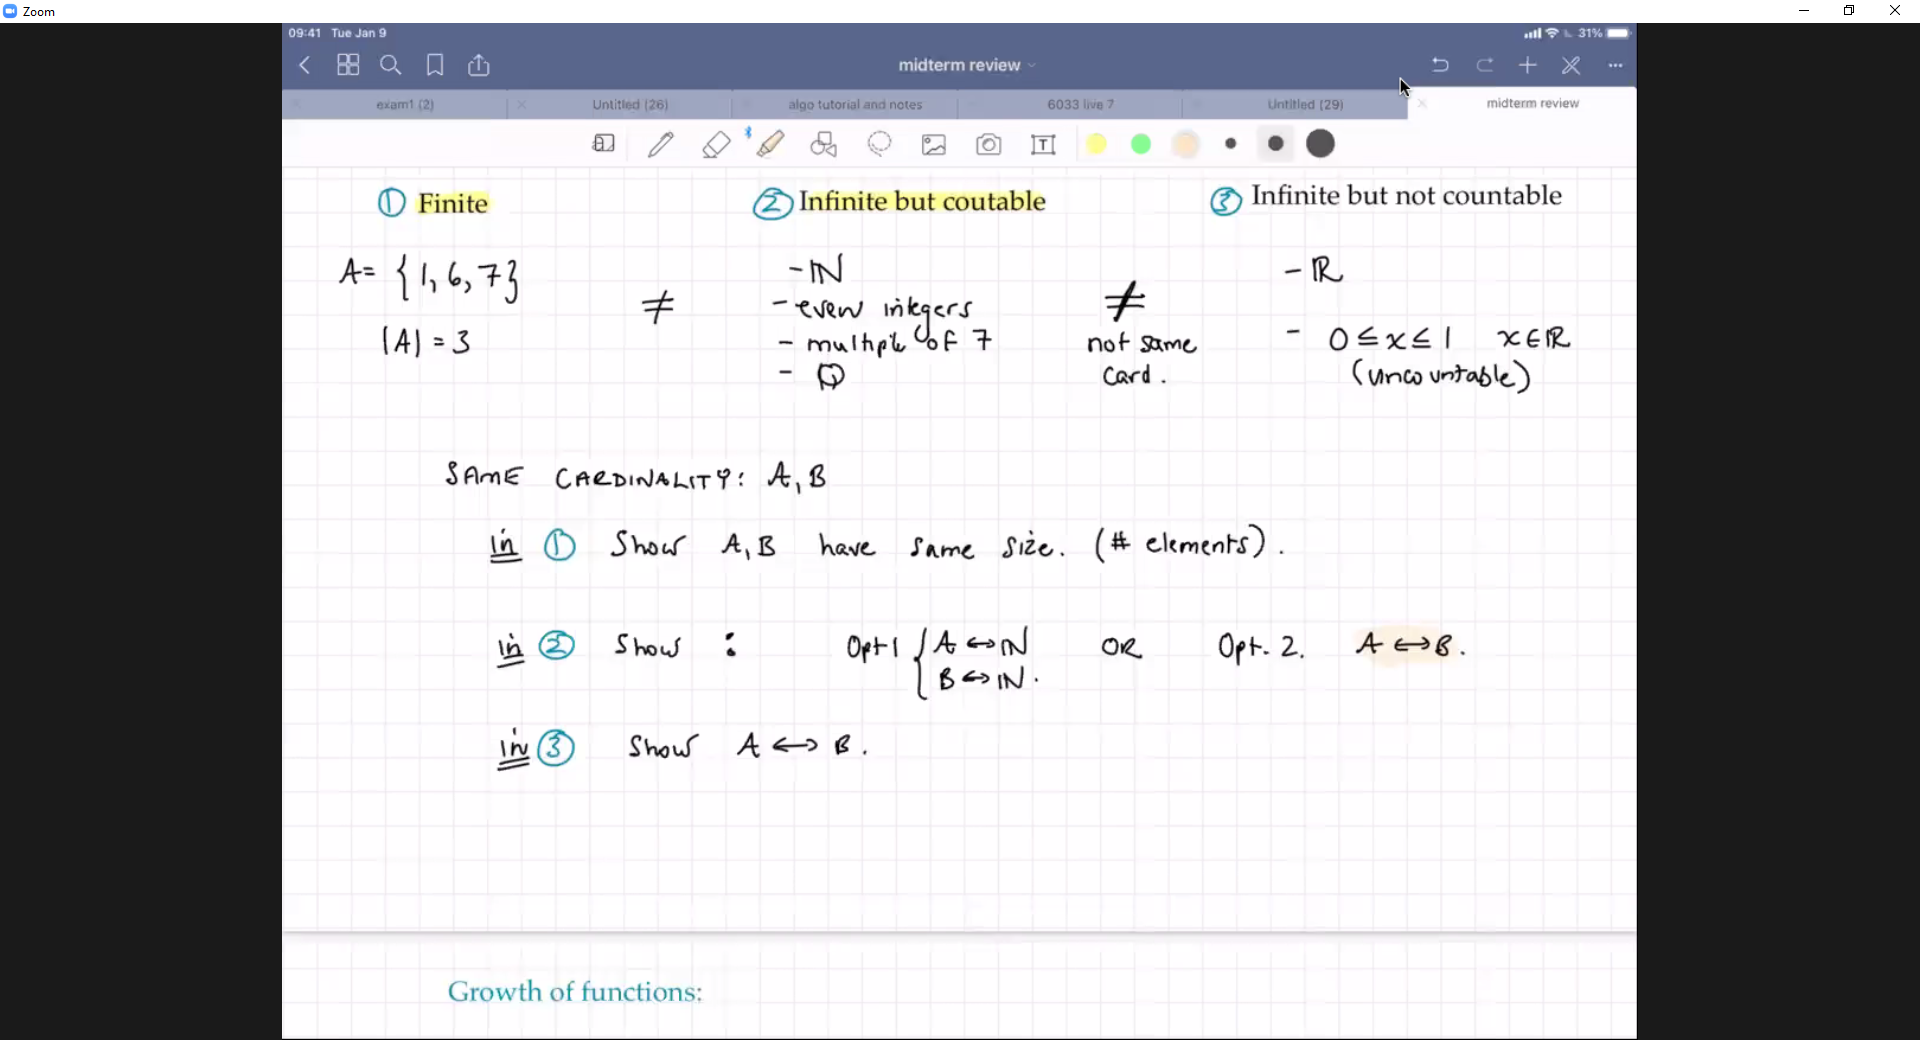 Zoom
09:41 Tue Jan 9
31%
midterm review
exam1 (2)
Untitled (26)
algo tutorial and notes
6033 live 7
Untitled (29)
midterm review
① Finite
② Infinite but coutable
③ Infinite but not countable
A= {1, 6, 7}
|A| = 3
≠
- ℕ
- even integers
- multiple of 7
- ℚ
≠
not same
card.
- ℝ
- 0 ≤ x ≤ 1 x ∈ ℝ
(uncountable)
SAME CARDINALITY: A, B
in ① Show A, B have same size. (# elements).
in ② Show : Opt 1 { A ↔ ℕ OR Opt. 2. A ↔ B.
B ↔ ℕ.
in ③ Show A ↔ B.
Growth of functions: